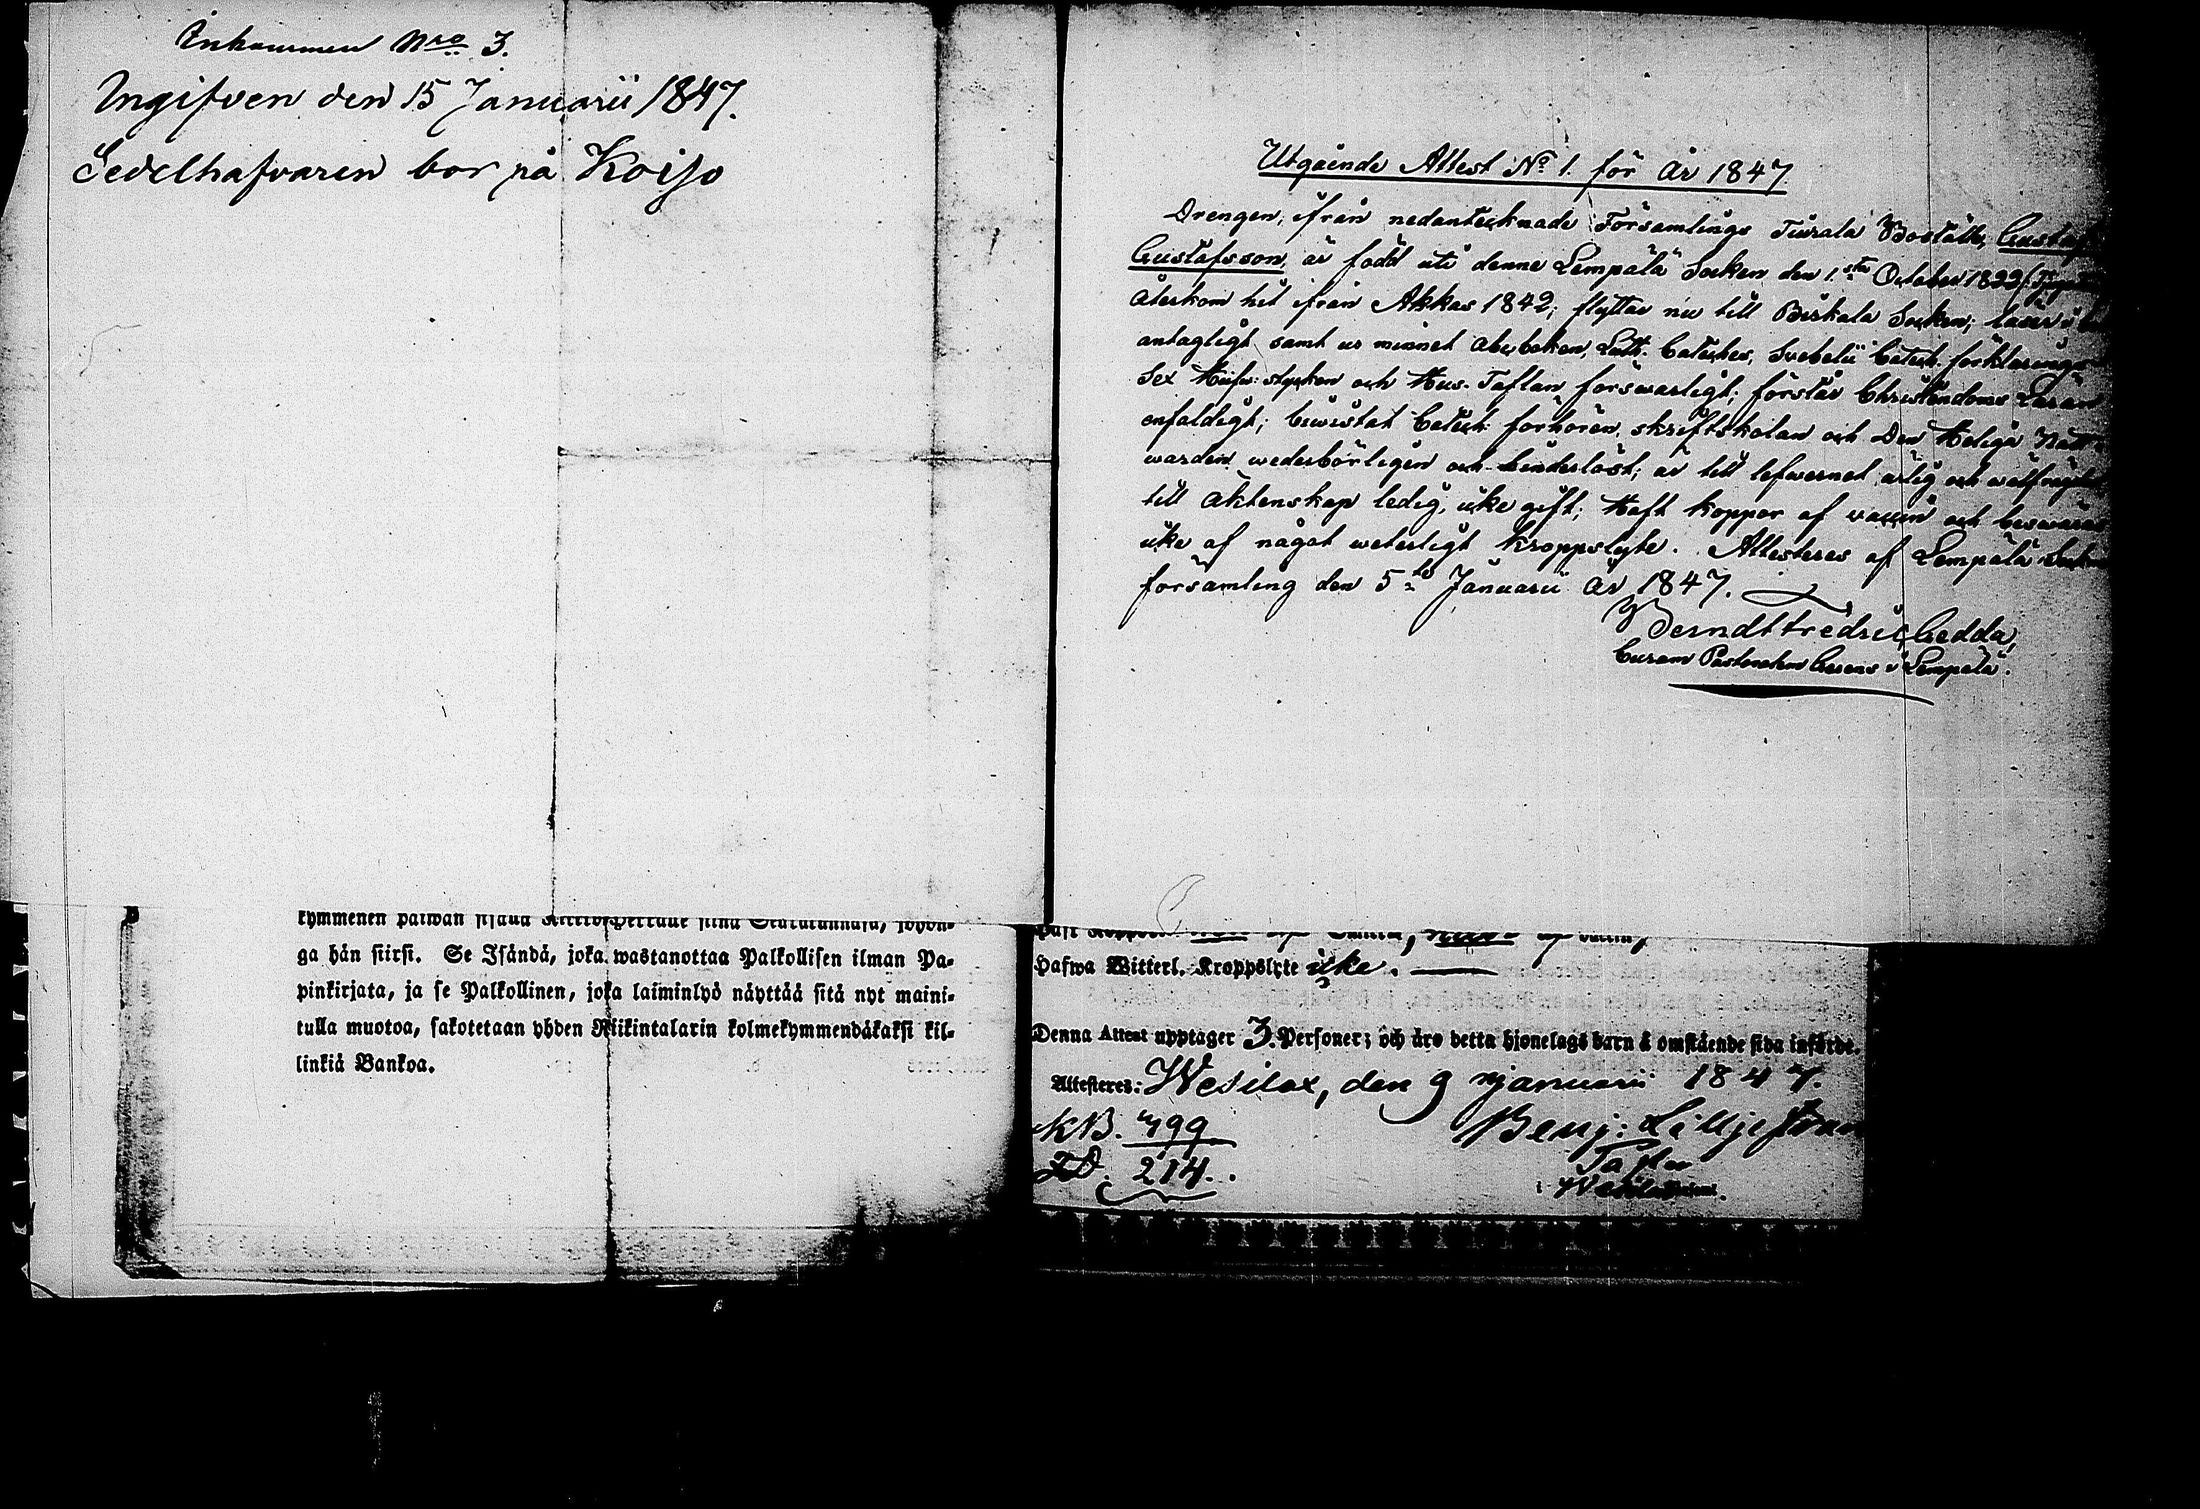 Inkommen Nro 3.
Ingifven den 15 Januarii 1847.
Sedelhafvaren bor på Koiso
Utgående Attest No 1. för år 1847
Drengen, ifrån nedantecknade Församlings Tiurala Boställe, Gustaf
Gustafsson, är född uti denne Lempälä Socken den 1sta October 1822
återkom hit ifrån Akkas 1842; flyttar nu till Birkala Socken; läser i bok
antagligt samt ur minnet abcboken, Luth. Cateches, Svebelii Catech. förklaringar
Sex Hufv: stycken och Hus-Taflan försvarligt; förstår Christendoms Läran
enfaldigt; bivistat Catech: förhören, skriftskolan och Den Heliga Natt-
varden vederbörligen och hinderlöst; är till lefvernet ärlig och välfrägdad
till äktenskap ledig, icke gift; Haft koppor af vaccin och besväras
icke af något veterligt kroppslyte. Attesteres af Lempälä Socken
församling den 5te Januarii år 1847.
Berndt Fredric Gedda,
Curam Pastoralem Gerens i Lempälä.
kymmenen päiwän sisällä Kirkko-Herralle siinä Seurakunnasa, johon-
ga hän siirsi. Se Isändä, joka wastanottaa Palkollisen ilman Pa-
pinkirjata, ja se Palkollinen, joka laiminlyö näyttää sitä nyt maini-
tulla muotoa, sakotetaan yhden Riikintalarin kolmekymmendäkaksi kil-
linkiä Bankoa.
Haft Koppor
Hafwa Witterl. Kroppslyte icke.
Denna Attest upptager 3 Personer; och äro detta hjonelags barn å omstående sida införde.
Attesteres: Wesilax, den 9 Januarii 1847.
KB. 499
214.
Benj: Lilljeström